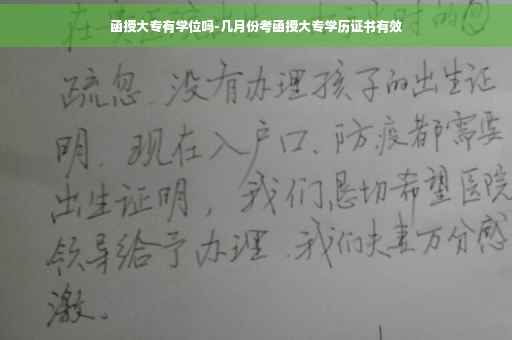 函授大专有学位吗-几月份考函授大专学历证书有效
疏忽、没有办理孩子的出生证
明、现在入户口、防疫都需要
出生证明，我们恳切希望医院
领导给予办理、我们夫妻万分感
激。